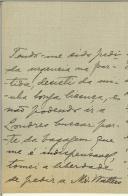 Tendo-me sido pedi-
da urgencia na par-
tida, desisti da mi-
nha longa licença, e
não podendo ir a
Londres buscar par-
te da bagagem que
me é indispensavel,
tomei a liberdade
de pedir a Mr. Mattos